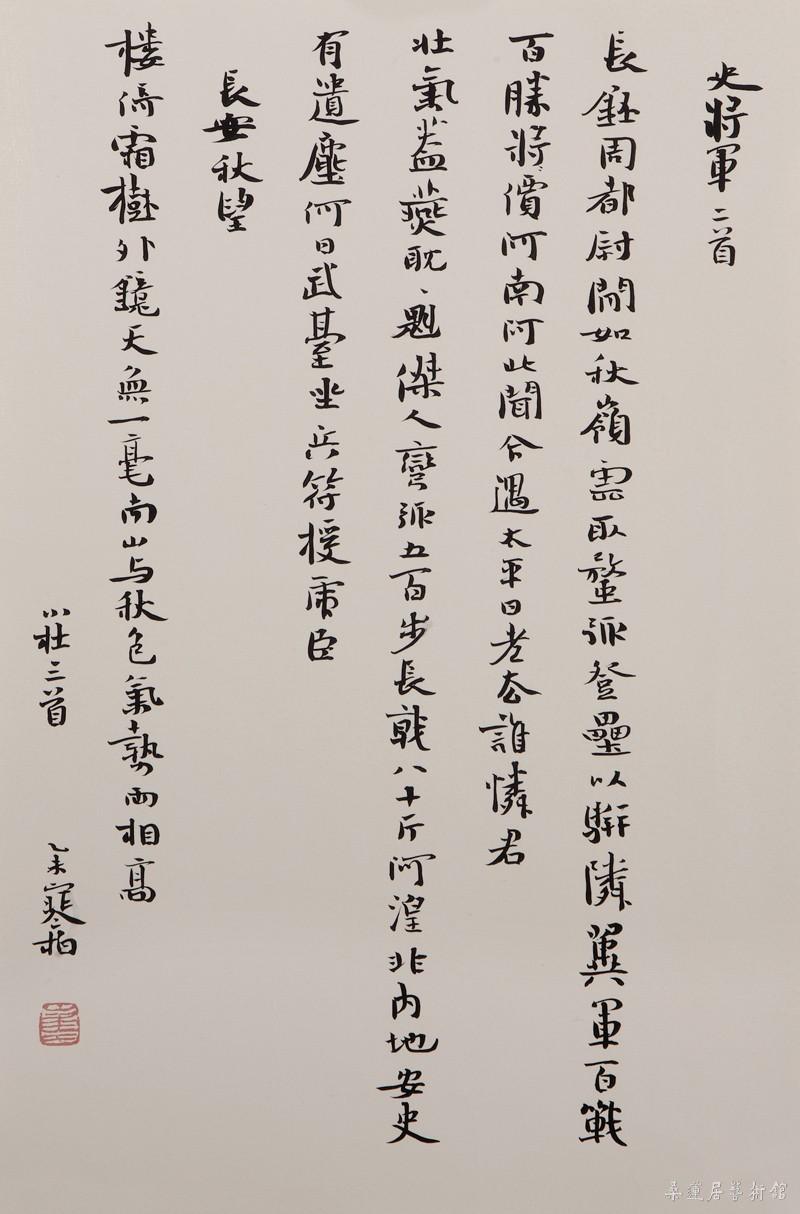 史將軍二首
長鈚周都尉閒如秋嶺雲取蝥弧登壘以駢隣翼軍百戰
百勝將價河南河北聞今遇太平日老去誰憐君
壯氣蓋燕耽、魁傑人彎弧五百步長戟八十斤河湟非內地安史
有遺塵何日武臺坐兵符授虎臣
長安秋望
楼倚霜樹外鏡天無一毫南山与秋色氣勢兩相高
小杜三首
乙未寒
桑蓮居藝術館